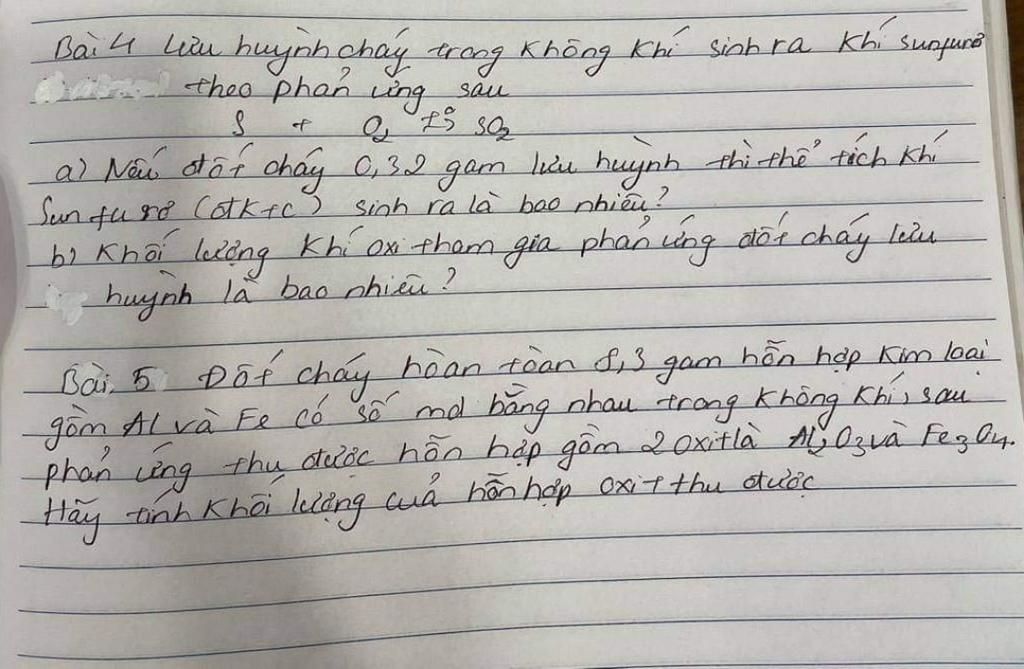 Bài 4 Lưu huỳnh cháy trong không khí sinh ra khí sunfurơ
theo phản ứng sau
S + O2 t° SO2
a) Nếu đốt cháy 0,32 gam lưu huỳnh thì thể tích khí
Sunfurơ (đktc) sinh ra là bao nhiêu?
b) Khối lượng khí oxi tham gia phản ứng đốt cháy lưu
huỳnh là bao nhiêu?
Bài 5 Đốt cháy hoàn toàn 8,3 gam hỗn hợp kim loại
gồm Al và Fe có số mol bằng nhau trong không khí, sau
phản ứng thu được hỗn hợp gồm 2 oxit là Al2O3 và Fe3O4.
Hãy tính khối lượng cuả hỗn hợp oxit thu được